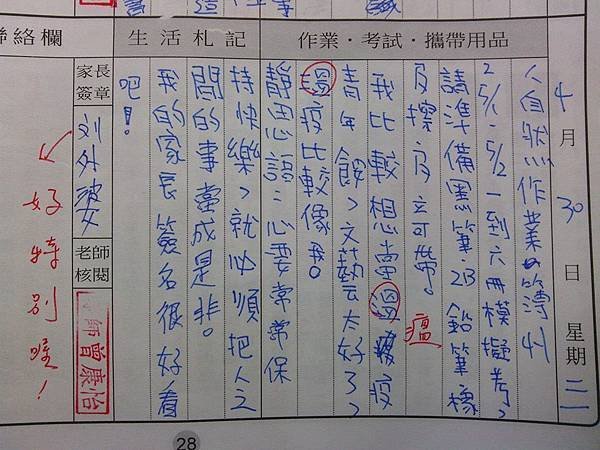 4月30日 星期二
人自然作業⇔簿州
2.5/1、5/2 一到六冊模擬考,
請準備黑筆、2B鉛筆、橡
皮擦、尺立可帶。
作業·考試·攜帶用品
我比較想當溫疫
瘟
青年餒,文藝太好了,
溫疫比較像我。
靜思心語:心要常常保
持快樂,就必順把人之
間的事當成是非。
生活札記
我的家長簽名很好看
吧!
聯絡欄
家長簽章
刘外婆女
老師核閱
師曾康怡
好特別喔!
28